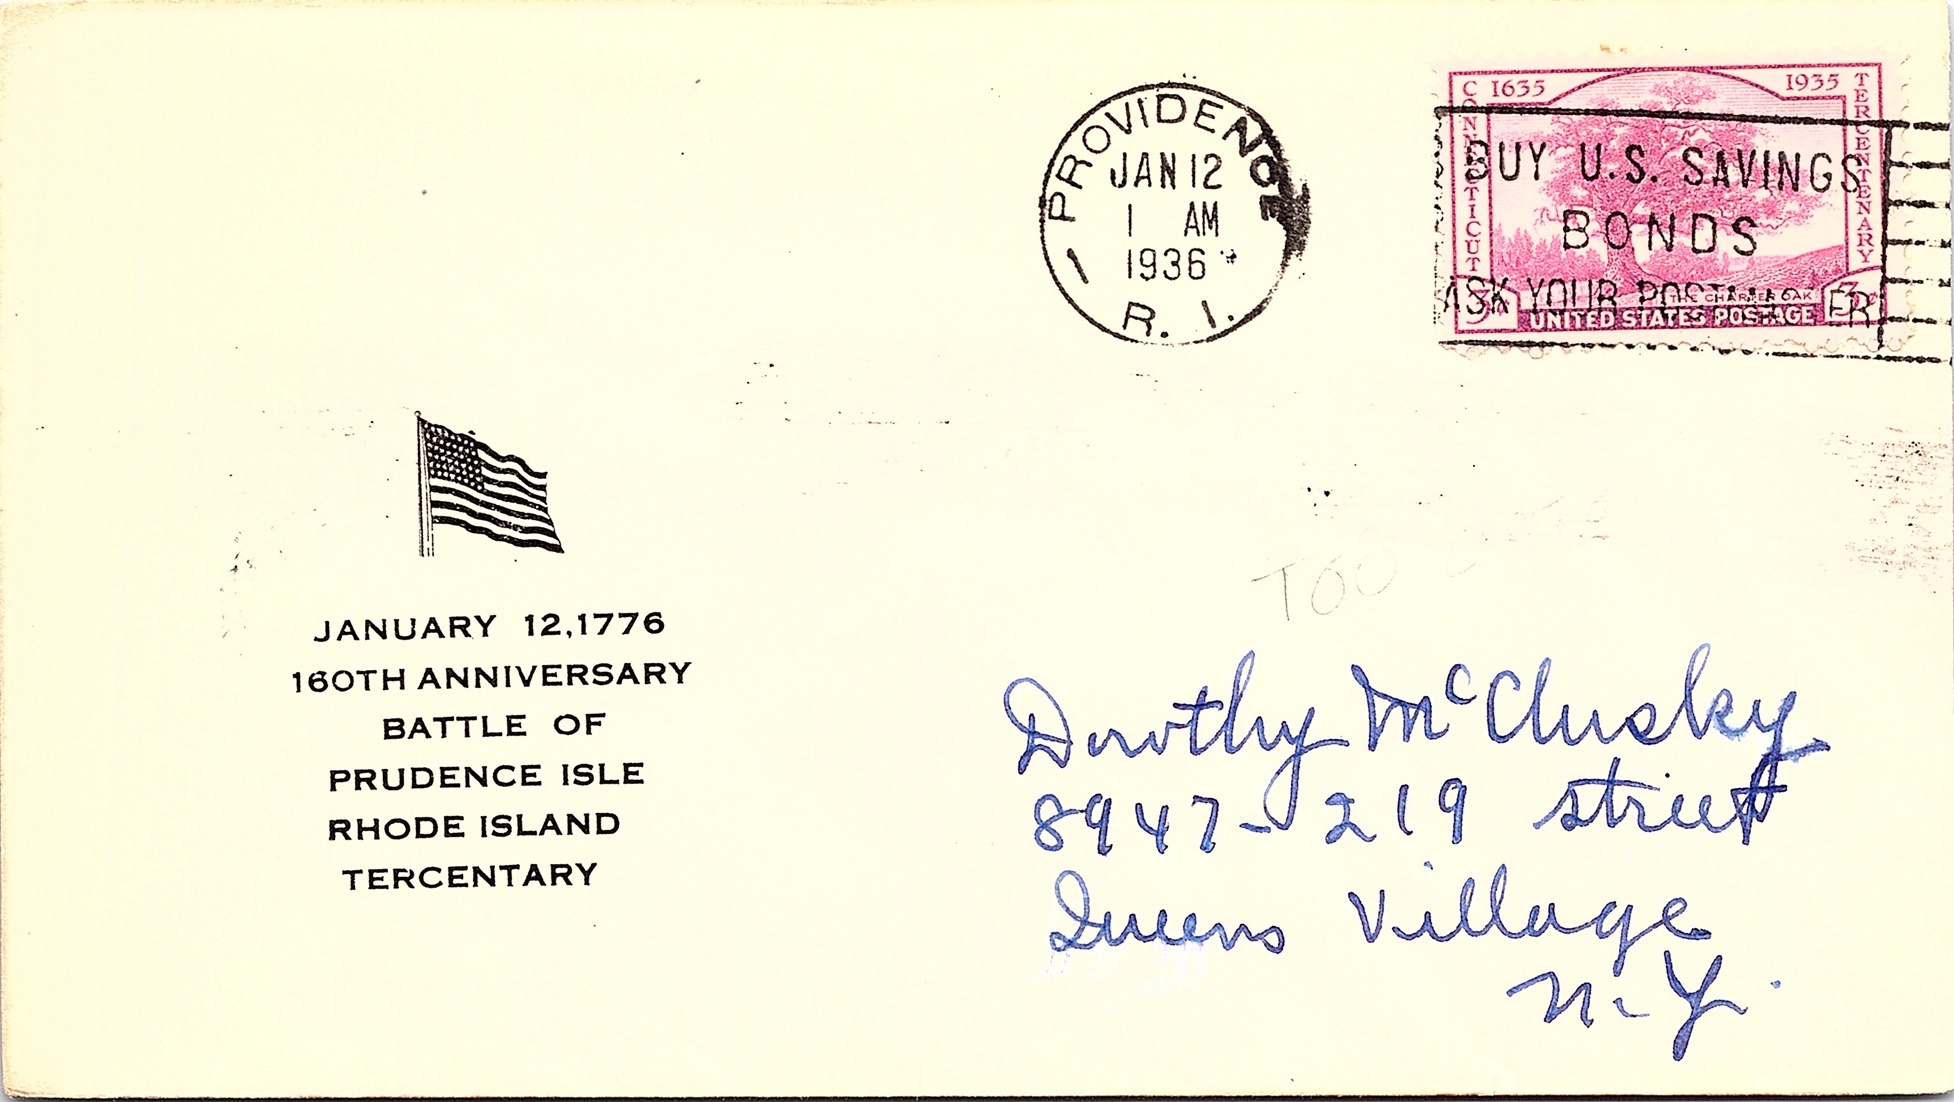 PROVIDENCE
JAN 12
1 AM
1936
1
R. I.
1635 1935
CONNECTICUT
TERCENTENARY
BUY U.S. SAVINGS
BONDS
ASK YOUR POSTMASTER
THE CHARTER OAK
3¢ 3¢
UNITED STATES POSTAGE
JANUARY 12, 1776
160TH ANNIVERSARY
BATTLE OF
PRUDENCE ISLE
RHODE ISLAND
TERCENTARY
Dorothy McClusky
8947-219 street
Queens Village
N.Y.